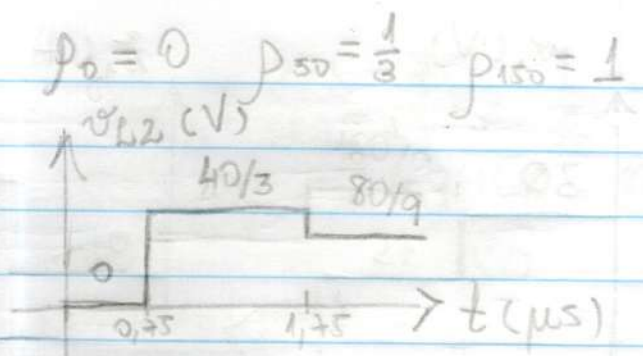 ρ₀ = 0 ρ₅₀ = 1/3 ρ₁₅₀ = 1
v_L2 (V)
40/3 80/9
0
0,75 1,75 t (μs)